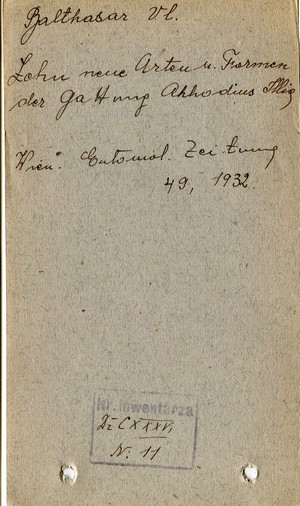 Balthasar Vl.
Zehn neue Arten u. Formen
der Gattung Aphodius Illig
Wien. Entomol. Zeitung
49, 1932.
Nr. inwentarza
CXXXVI
N. 11